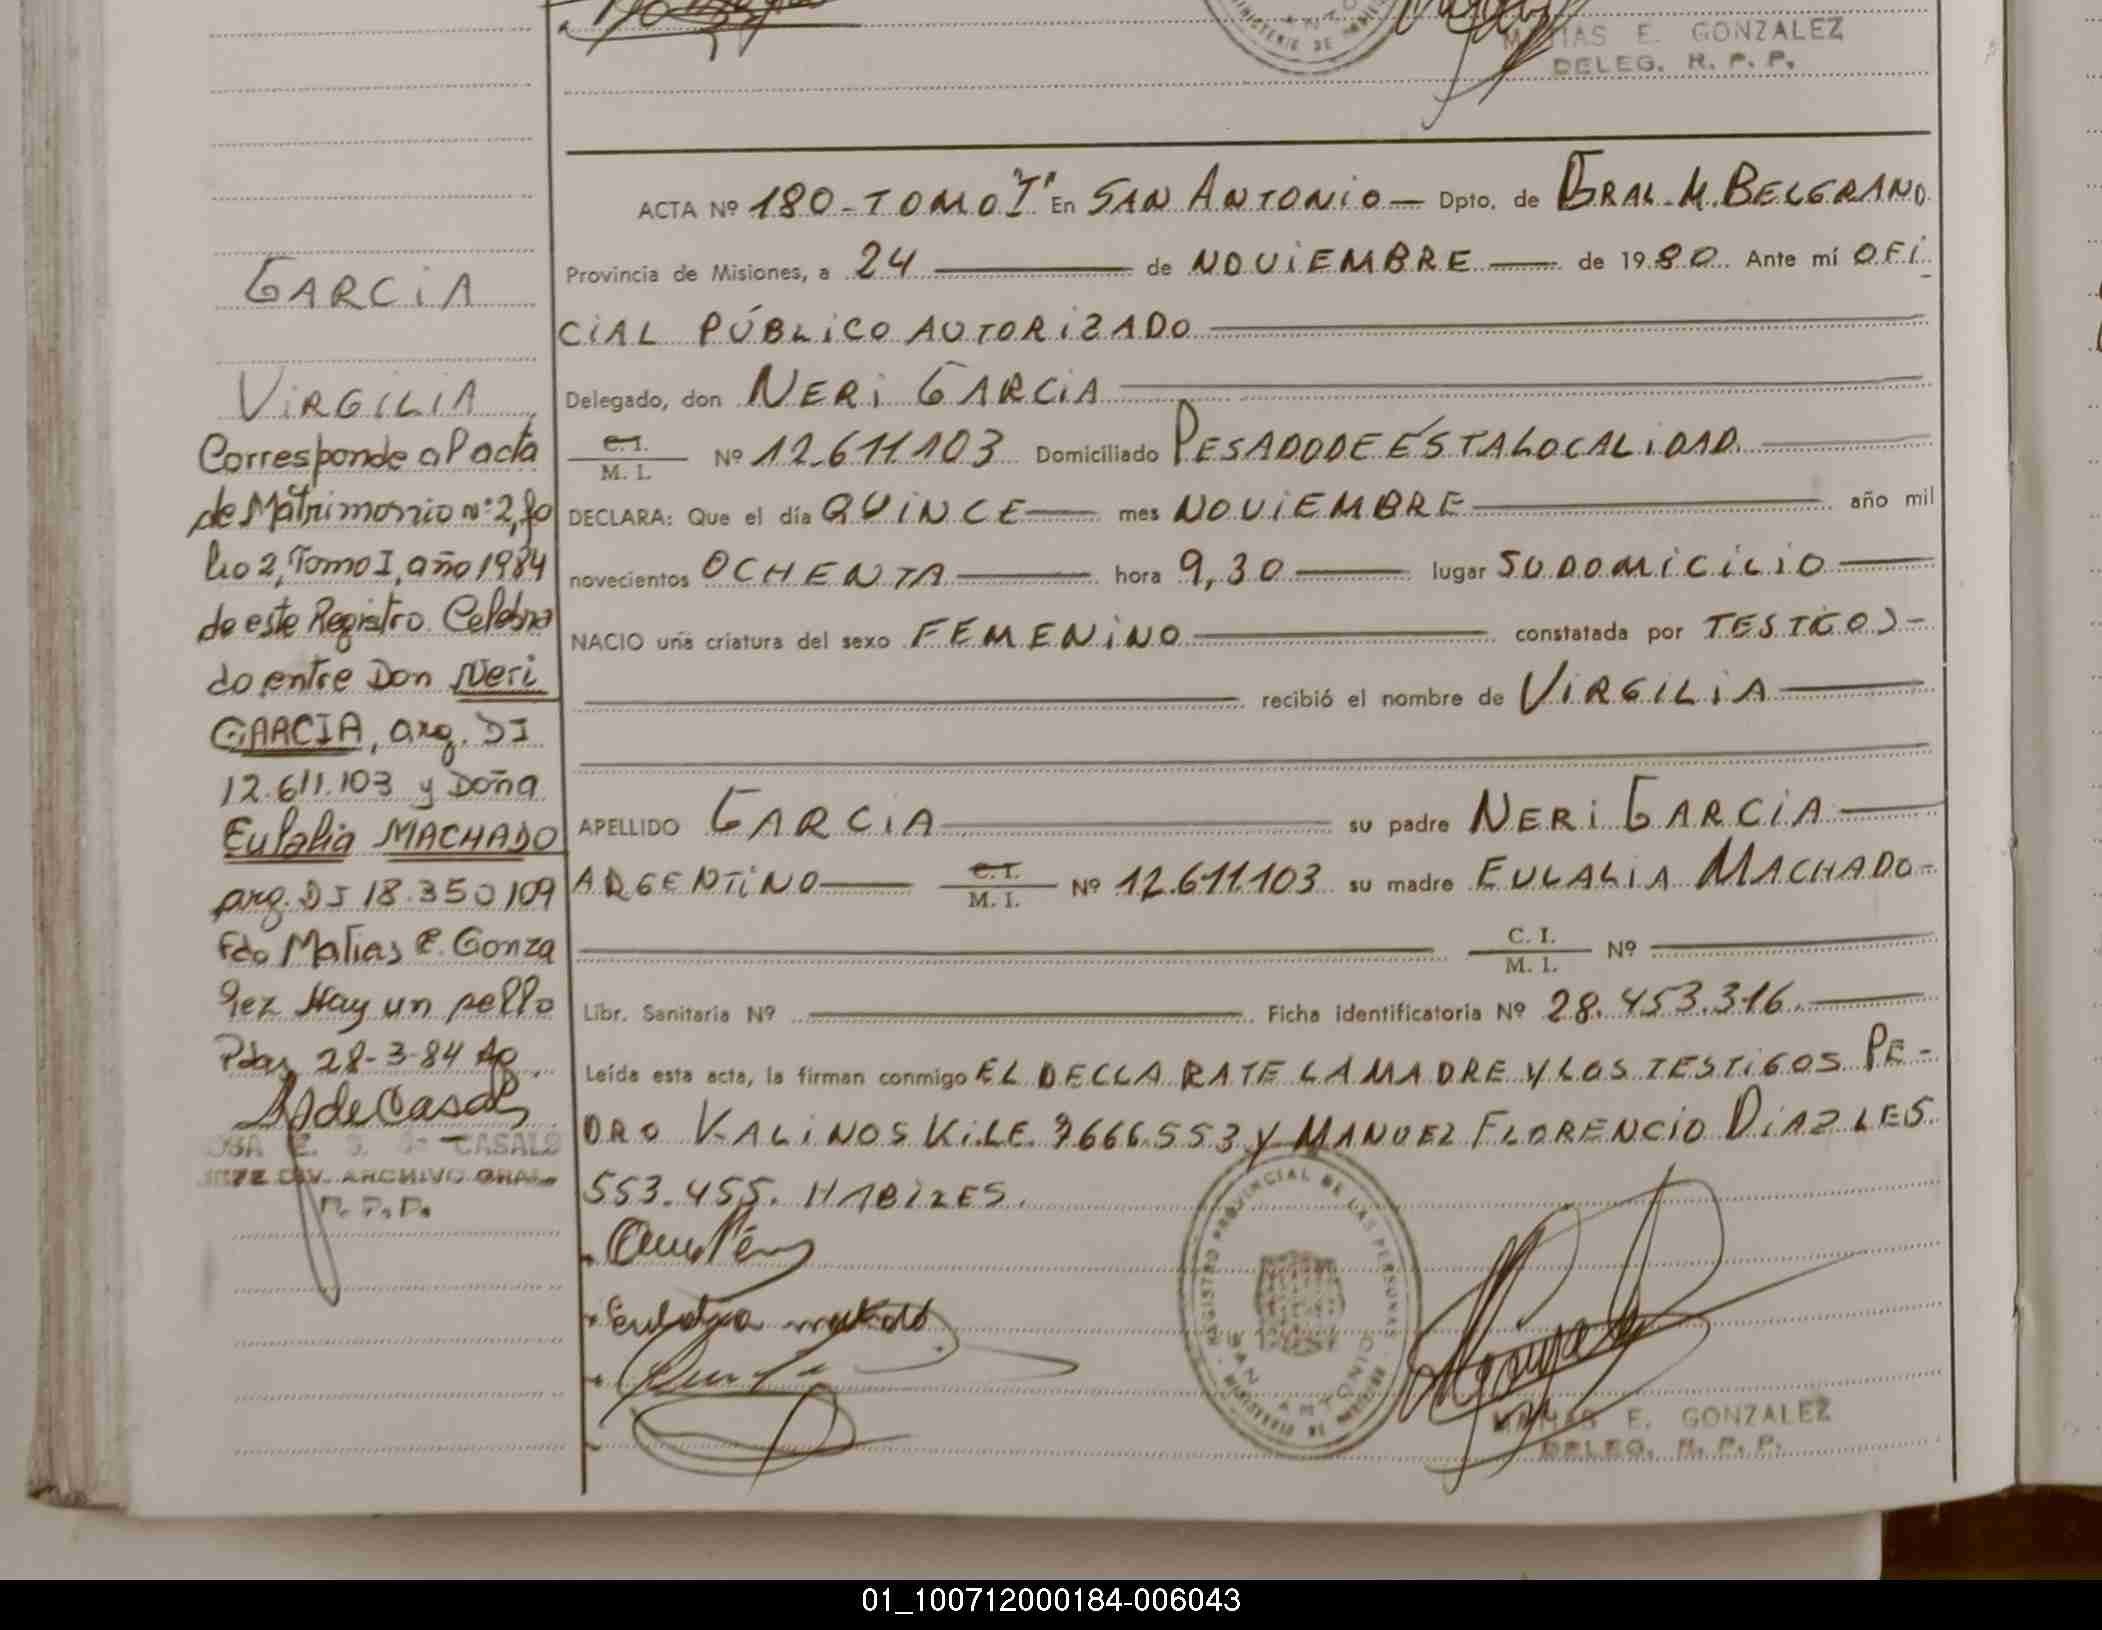 MATIAS E. GONZALEZ
DELEG. R. P. P.
ACTA Nº 180-TOMO "I" En SAN ANTONIO — Dpto. de GRAL. M. BELGRANO
Provincia de Misiones, a 24 — de NOVIEMBRE — de 1980. Ante mí OFI
CIAL PÚBLICO AUTORIZADO
Delegado, don NERI GARCIA
C. I. / M. I. Nº 12.611.103 Domiciliado PESADO DE ESTA LOCALIDAD.
DECLARA: Que el día QUINCE — mes NOVIEMBRE — año mil
novecientos OCHENTA — hora 9,30 — lugar SU DOMICILIO —
NACIO una criatura del sexo FEMENINO — constatada por TESTIGOS -
recibió el nombre de VIRGILIA —
APELLIDO GARCIA — su padre NERI GARCIA —
ARGENTINO — C. I. / M. I. Nº 12.611.103 su madre EULALIA MACHADO-
C. I. / M. I. Nº
Libr. Sanitaria Nº — Ficha identificatoria Nº 28.453.316.
Leída esta acta, la firman conmigo EL DECLARATE LA MADRE Y LOS TESTIGOS PE-
DRO KALINOSKI LE 7666.553 Y MANUEL FLORENCIO DIAZ LE5
553.455. HABILES.
REGISTRO PROVINCIAL DE LAS PERSONAS
SAN ANTONIO
MATIAS E. GONZALEZ
DELEG. R. P. P.
GARCIA
VIRGILIA
Corresponde al acta
de Matrimonio nº 2, fo
lio 2, Tomo I, año 1984
de este Registro. Celebra
do entre Don Neri
GARCIA, arg. DI
12.611.103 y Doña
Eulalia MACHADO
arg. DI 18.350109
Fdo Matias E. Gonza
lez Hay un sello
Pdas 28-3-84
CASALS
DIV. ARCHIVO GRAL.
R. P. P.
01_100712000184-006043